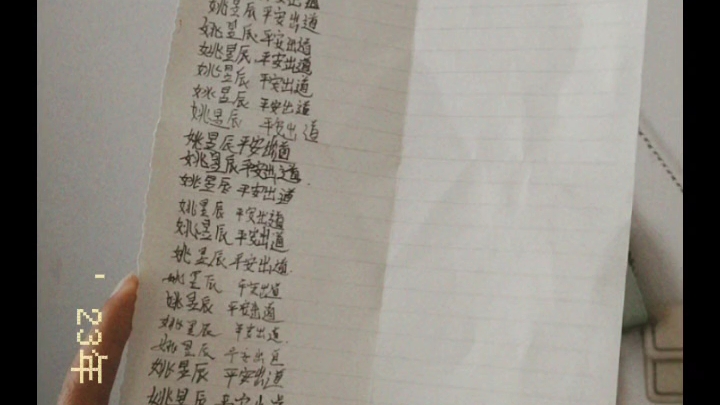 姚昱辰 平安出道
姚昱辰 平安出道
姚昱辰 平安出道
姚昱辰 平安出道
姚昱辰 平安出道
姚昱辰 平安出道
姚昱辰平安出道
姚昱辰平安出道
姚昱辰 平安出道
姚昱辰 平安出道
姚昱辰 平安出道
姚昱辰 平安出道
姚昱辰 平安出道
姚昱辰 平安出道
姚昱辰 平安出道
姚昱辰 平安出道
姚昱辰 平安出道
姚昱辰 平安出道
'23年